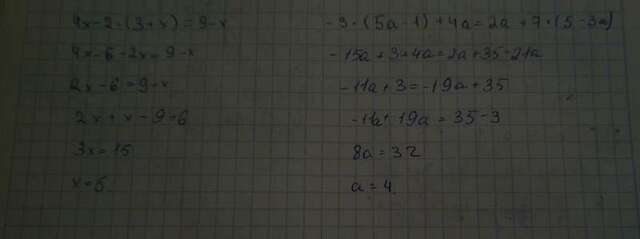 4x-2·(3+x)=9-x
4x-6-2x=9-x
2x-6=9-x
2x+x-9+6
3x=15
x=5
-3·(5a-1)+4a=2a+7·(5-3a)
-15a+3+4a=2a+35-21a
-11a+3=-19a+35
-11a+19a=35-3
8a=32
a=4